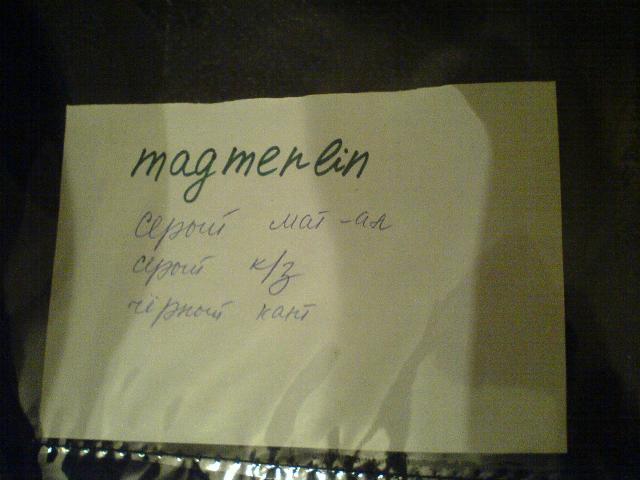 magmerlin
серый мат-ал
серый к/з
чёрный кант